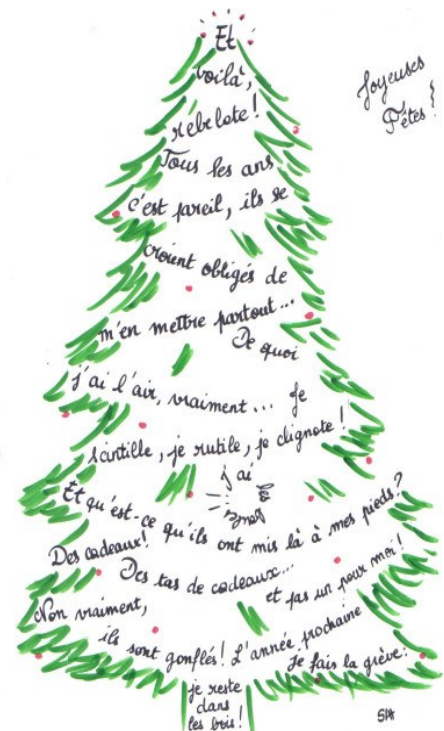 Et
voilà,
rebelote !
Tous les ans
c'est pareil, ils se
croient obligés de
m'en mettre partout...
De quoi
j'ai l'air, vraiment... Je
scintille, je rutile, je clignote !
j'ai
les
boules
Et qu'est-ce qu'ils ont mis là à mes pieds ?
Des cadeaux !
Des tas de cadeaux...
et pas un pour moi !
Non vraiment,
ils sont gonflés ! L'année prochaine
Je fais la grève :
je reste
dans
les bois !
Joyeuses
Fêtes !
SH